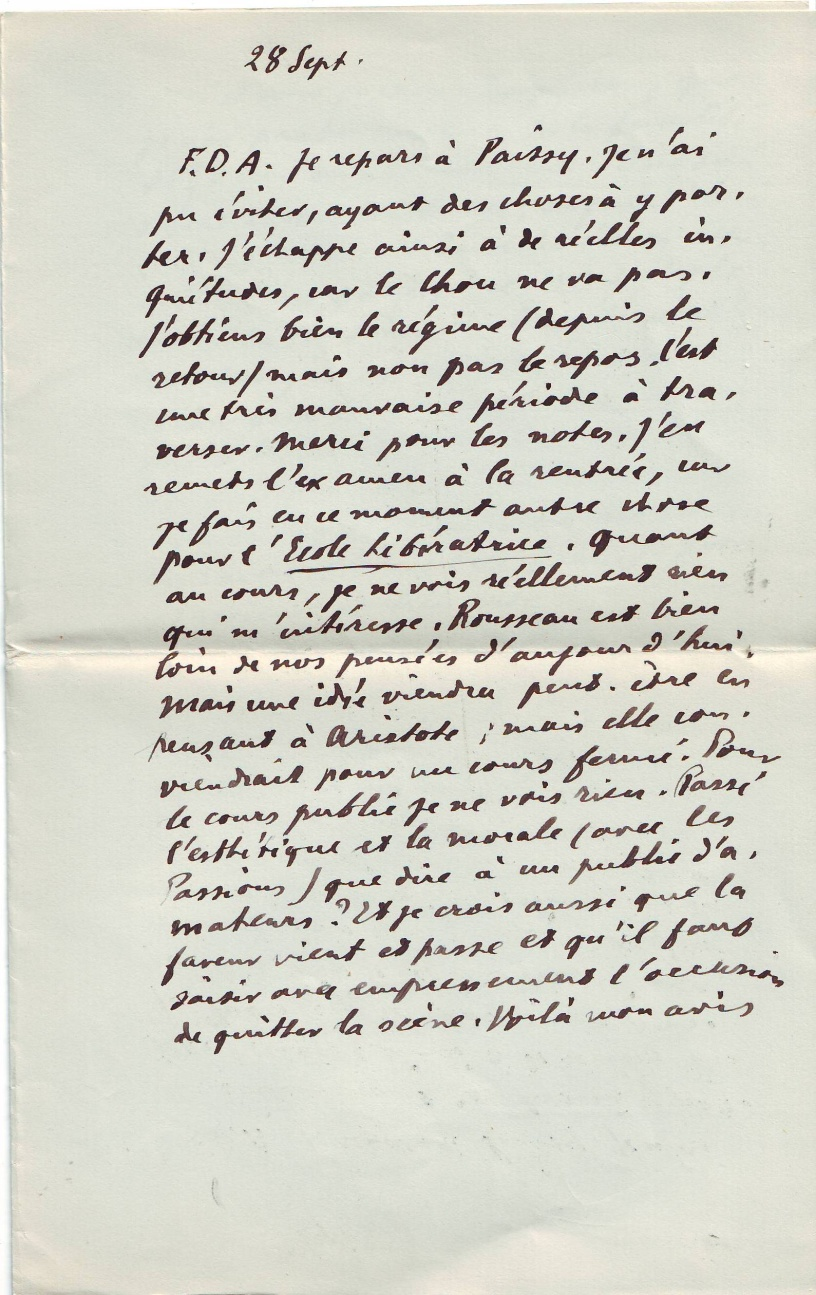 28 Sept.
F.D.A. Je repars à Paissy. Je n'ai
pu éviter, ayant des choses à y por-
ter. J'échappe ainsi à de réelles in-
quiétudes, car le Chou ne va pas.
J'obtiens bien le régime (depuis le
retour) mais non pas le repos. C'est
une très mauvaise période à tra-
verser. Merci pour les notes. J'en
remets l'examen à la rentrée, car
je fais en ce moment autre chose
pour l'Ecole Libératrice. Quant
au cours, je ne vois réellement rien
qui m'intéresse. Rousseau est bien
loin de nos pensées d'aujourd'hui.
Mais une idée viendra peut-être en
pensant à Aristote ; mais elle con-
viendrait pour un cours fermé. Pour
le cours public je ne vois rien. Passé
l'esthétique et la morale (avec les
Passions) que dire à un public d'a-
mateurs ? Et je crois aussi que la
faveur vient et passe et qu'il faut
saisir avec empressement l'occasion
de quitter la scène. Voilà mon avis